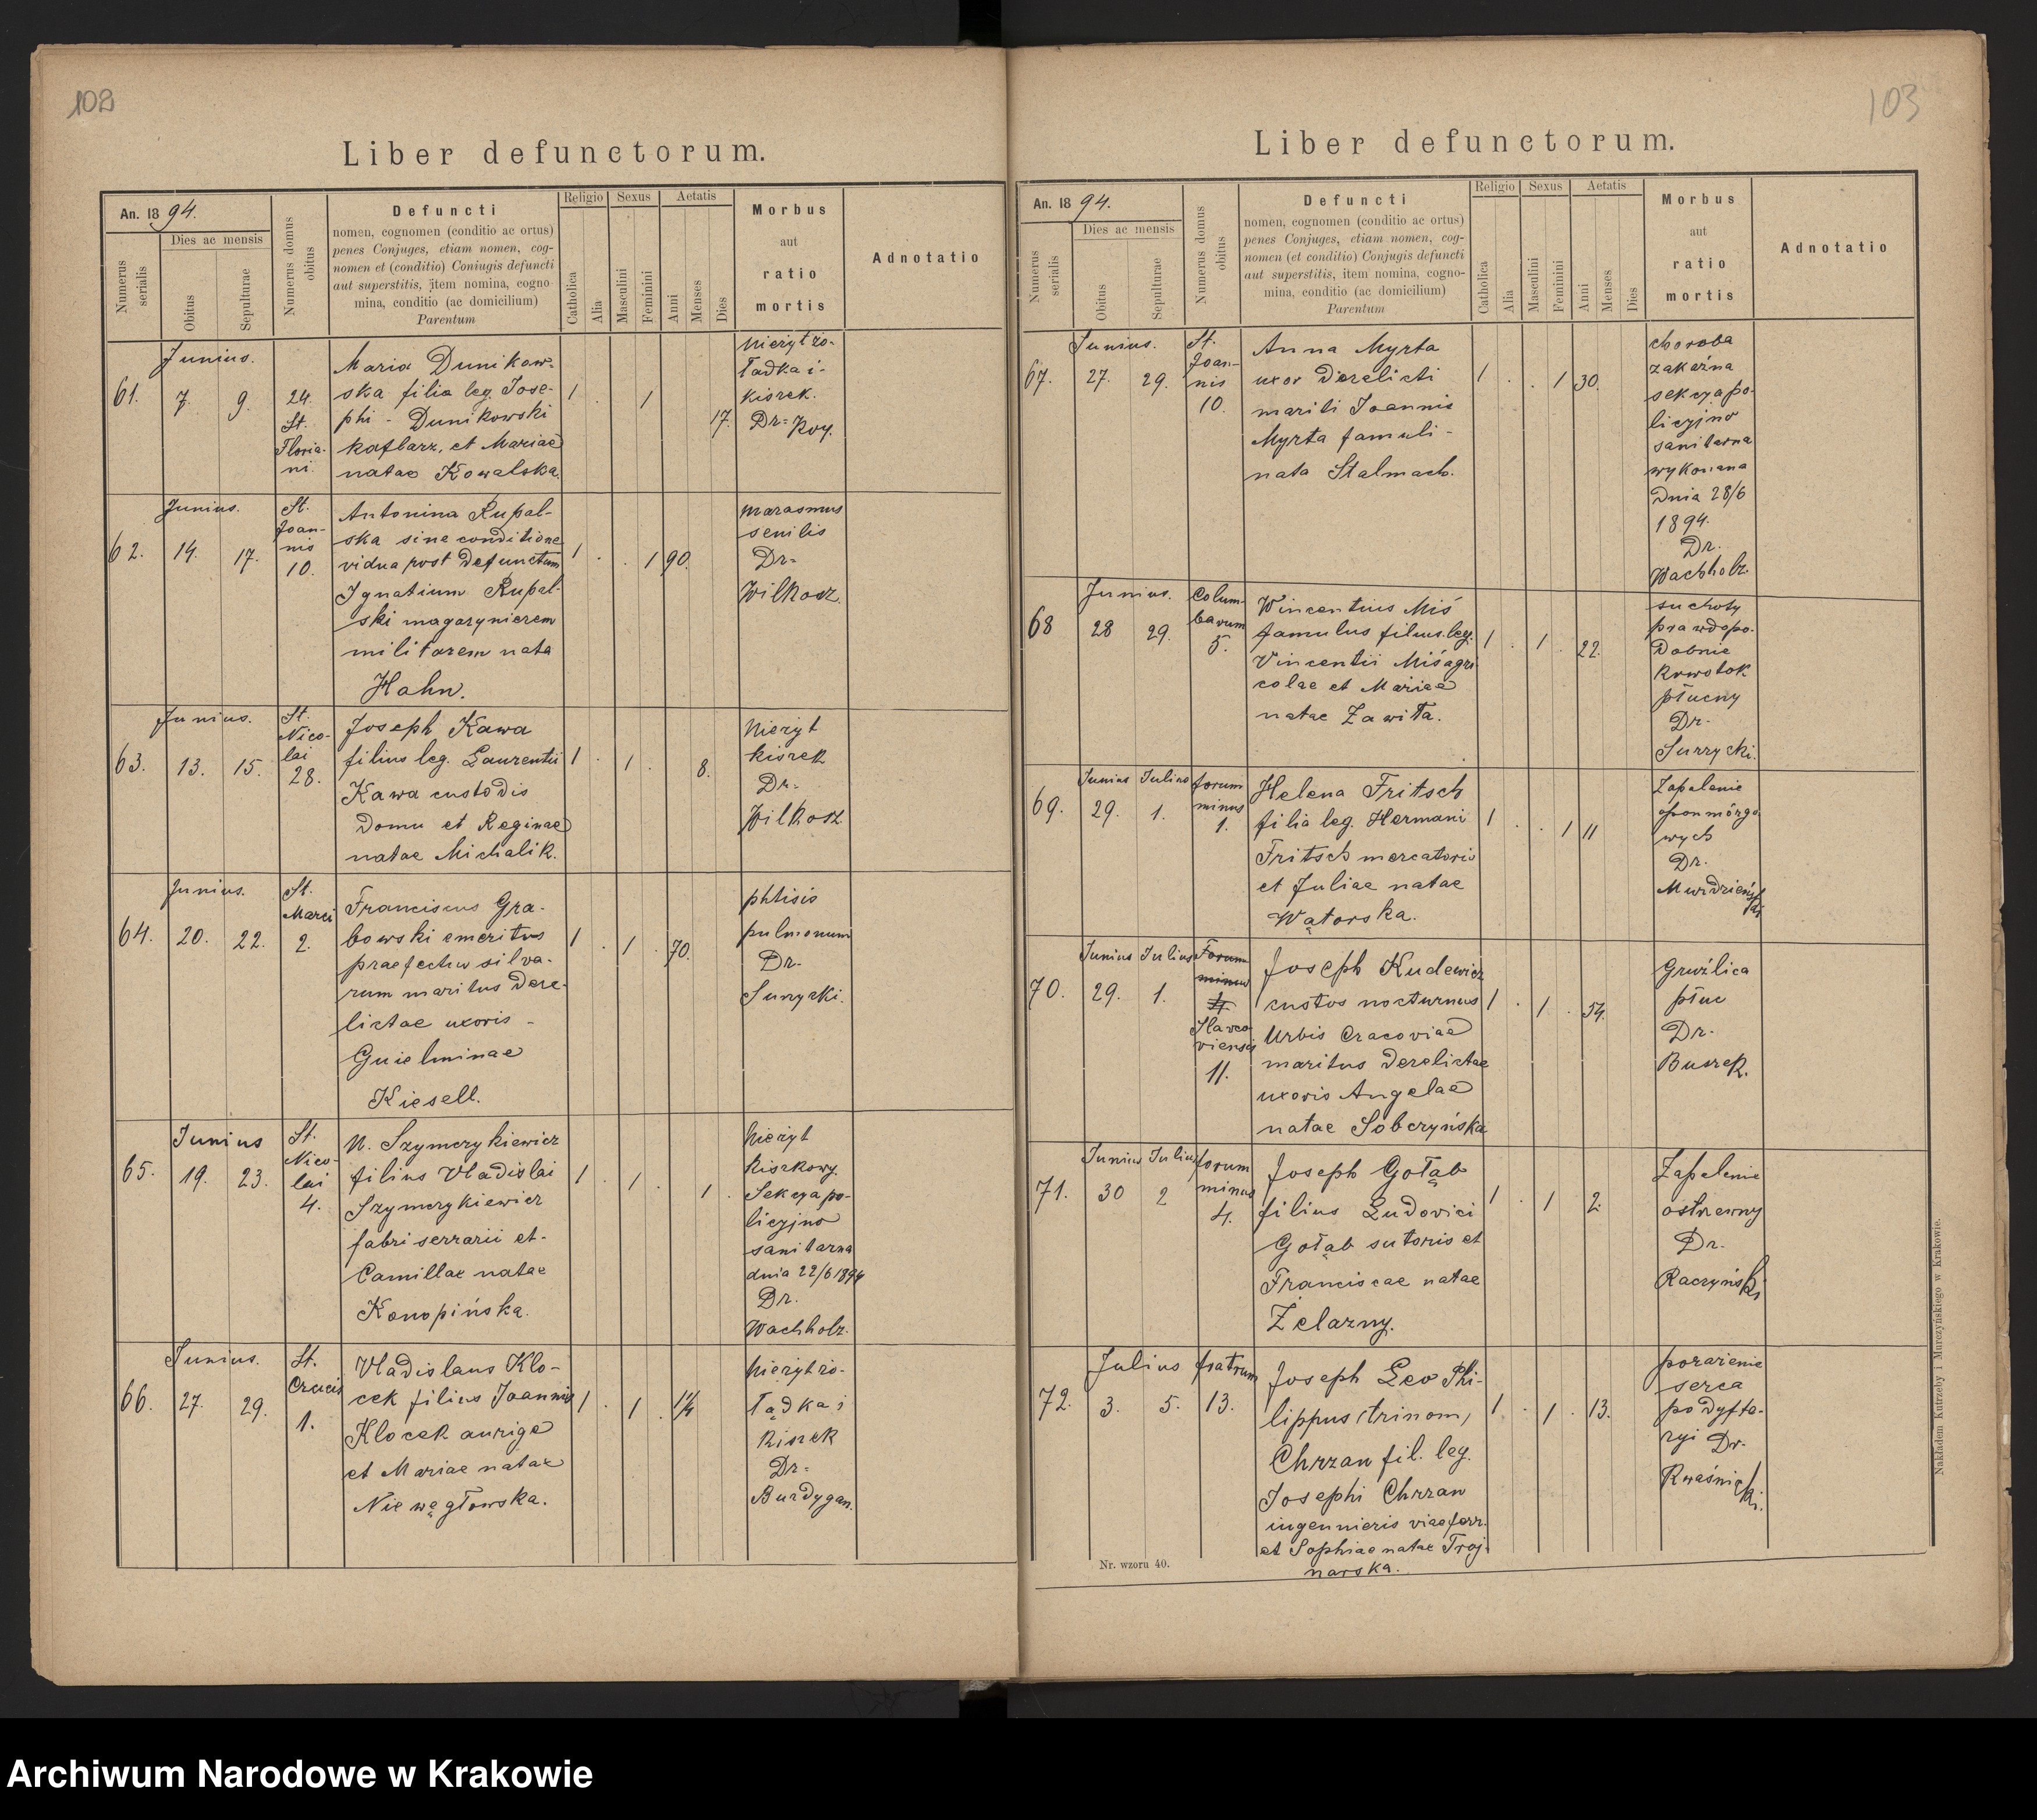 102
Liber defunctorum.
An. 18 94.
Numerus serialis
Dies ac mensis
Obitus
Sepulturae
Numerus domus obitus
Defuncti
nomen, cognomen (conditio ac ortus)
penes Conjuges, etiam nomen, cog-
nomen et (conditio) Coniugis defuncti
aut superstitis, item nomina, cogno
mina, conditio (ac domicilium)
Parentum
Religio
Catholica
Alia
Sexus
Masculini
Feminini
Aetatis
Anni
Menses
Dies
Morbus
aut
ratio
mortis
Adnotatio
Junius.
61. 7. 9.
24.
St.
Floria-
ni.
Maria Dunikow-
ska filia leg. Jose-
phi - Dunikowski
kaflarz, et Mariae
natae Kowalska.
1 . 1 17.
Nieżyt żo-
łądka i -
kiszek.
Dr. Roy.
Junius.
62. 14. 17.
St.
Joan-
nis
10.
Antonina Rupal-
ska sine conditione
vidua post defunctum
Ignatium Rupal-
ski magazynierem
militarem nata
Hahn.
1 . . 1 90.
marasmus
senilis
Dr.
Wilkosz.
Junius.
63. 13. 15.
St.
Nico-
lai
28.
Joseph Kawa
filius leg. Laurentii
Kawa custodis
domu et Reginae
natae Michalik.
1 . 1 . 8.
Nieżyt
kiszek
Dr.
Wilkosz
Junius.
64. 20. 22.
St.
Marci
2.
Franciscus Gra-
bowski emeritus
praefectus silva-
rum maritus dere-
lictae uxoris -
Guielminae
Kiesell.
1 . 1 . 70.
phtisis
pulmonum
Dr.
Surzycki.
Junius
65. 19. 23.
St.
Nico-
lai
4.
N. Szymczykiewicz
filius Vladislai
Szymczykiewicz
fabri serrarii et -
Camillae natae
Konopińska.
1 . 1 . 1 .
Nieżyt
kiszkowy.
Sekcya po-
licyjno
sanitarna
dnia 22/6 1894
Dr.
Wachholz.
Junius.
66. 27. 29.
St.
Crucis
1.
Vladislaus Klo-
cek filius Joannis
Klocek aurigae
et Mariae natae
Niewęgłowska.
1 . 1 . 1/4
Nieżyt żo-
łądka i
kiszek
Dr.
Burdygan.
103
Liber defunctorum.
An. 18 94.
Numerus serialis
Dies ac mensis
Obitus
Sepulturae
Numerus domus obitus
Defuncti
nomen, cognomen (conditio ac ortus)
penes Conjuges, etiam nomen, cog-
nomen (et conditio) Conjugis defuncti
aut superstitis, item nomina, cogno-
mina, conditio (ac domicilium)
Parentum
Religio
Catholica
Alia
Sexus
Masculini
Feminini
Aetatis
Anni
Menses
Dies
Morbus
aut
ratio
mortis
Adnotatio
Junius.
67. 27. 29.
St.
Joan-
nis
10.
Anna Myrta
uxor derelicti
mariti Joannis
Myrta famuli -
nata Stalmach.
1 . . 1 30.
choroba
zakaźna
sekcya po-
licyjno
sanitarna
wykonana
dnia 28/6
1894.
Dr.
Wachholz.
Junius.
68 28 29.
Colum-
barum
5.
Wincentius Miś
famulus filius leg.
Vincentii Miś agri-
colae et Mariae
natae Zawiła.
1 . 1 . 22.
suchoty
prawdopo-
dobnie
krwotok
płucny
Dr.
Surzycki.
Junius Julius
69. 29. 1.
forum
minus
1.
Helena Fritsch
filia leg. Hermani
Fritsch mercatoris
et Juliae natae
Wątorska.
1 . . 1 11
Zapalenie
opon mózgo
wych
Dr.
Murdzieński
Junius Julius
70. 29. 1.
Forum
minus
4
Slavco-
viensis
11.
Joseph Kudewicz
custos nocturnus
Urbis Cracoviae
maritus derelictae
uxoris Angelae
natae Sobczyńska
1 . 1 . 54.
Gruźlica
płuc
Dr.
Buszek.
Junius Julius
71. 30 2
forum
minus
4.
Joseph Gołąb
filius Ludovici
Gołąb sutoris et
Franciscae natae
Żelazny.
1 . 1 2.
Zapalenie
Dr.
Raczyński
Julius
72. 3. 5.
fratrum
13.
Joseph Leo Phi-
lippus (trinom)
Chrzan fil. leg.
Josephi Chrzan
ingennieris viae ferr.
et Sophiae natae Troj-
narska.
1 . 1 . 13.
porażenie
serca
po dyfte-
ryi Dr.
Kwaśnicki.
Nr. wzoru 40.
Nakładem Kutrzeby i Murczyńskiego w Krakowie.
Archiwum Narodowe w Krakowie